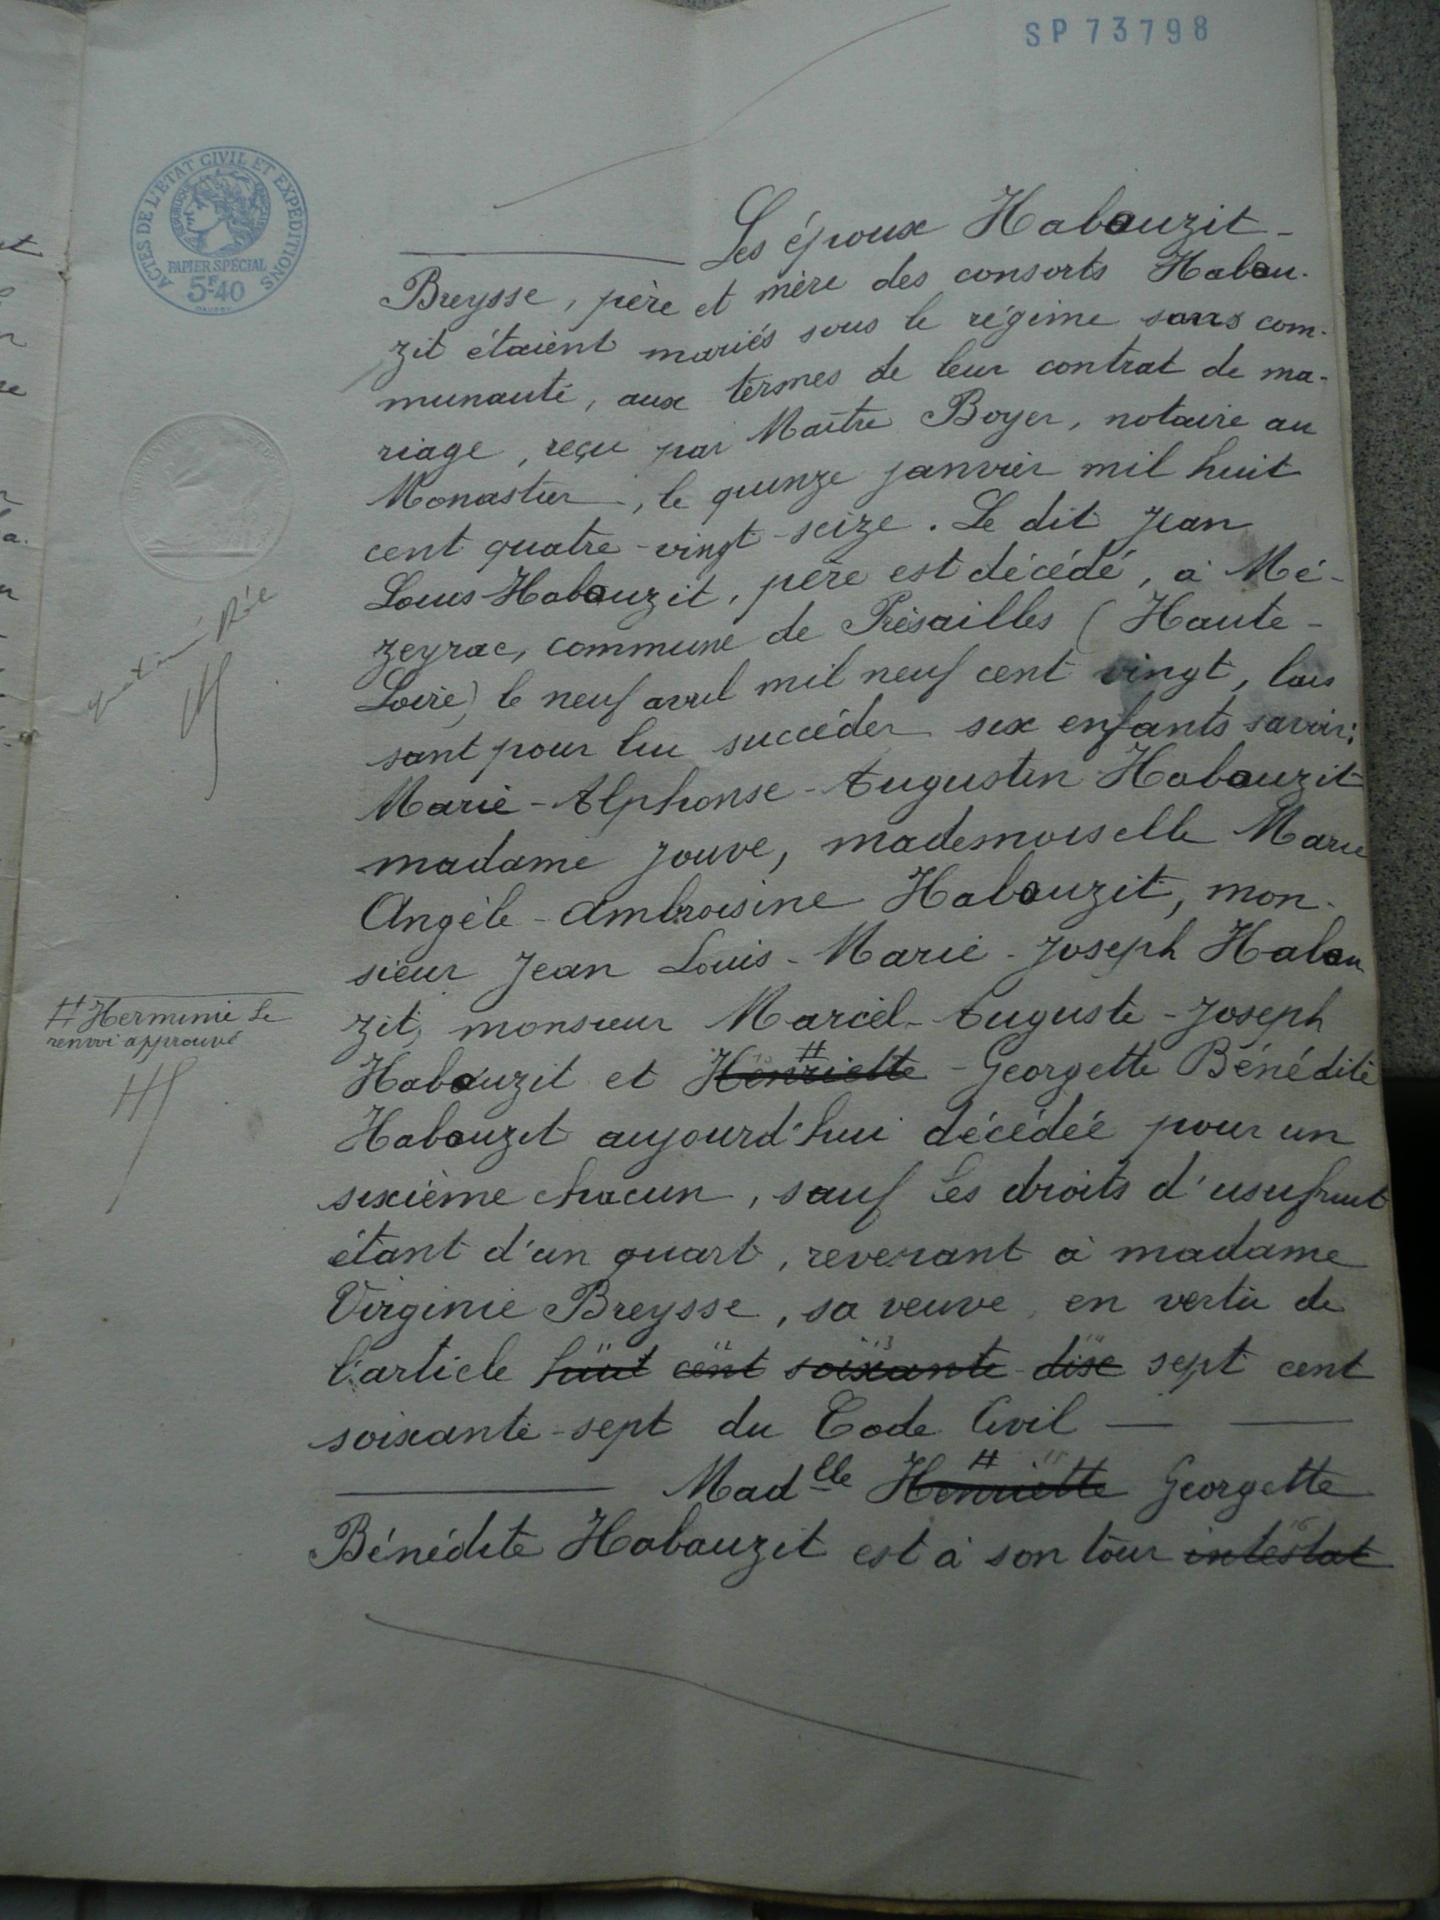 SP 73798
ACTES DE L'ETAT CIVIL ET EXPEDITIONS
REPUBLIQUE FRANCAISE
PAPIER SPECIAL
5F40
Les époux Habouzit-
Breysse, père et mère des consorts Habou-
zit étaient mariés sous le régime sans com-
munauté, aux termes de leur contrat de ma-
riage, reçu par Maître Boyer, notaire au
Monastier, le quinze janvier mil huit
cent quatre-vingt-seize. Le dit Jean
Louis Habouzit, père est décédé, à Mé-
zeyrac, commune de Présailles (Haute-
Loire) le neuf avril mil neuf cent vingt, lais
sant pour lui succéder six enfants savoir:
Marie-Alphonse-Augustin Habouzit
madame Jouve, mademoiselle Marie
Angèle-Ambroisine Habouzit, mon-
sieur Jean Louis-Marie-Joseph Habou
zit, monsieur Marcel-Auguste-Joseph
# Herminie Le
renvoi approuvé
Habouzit et # Henriette-Georgette Bénédite
Habouzit aujourd'hui décédée pour un
sixième chacun, sauf les droits d'usufruit
étant d'un quart, revenant à madame
Virginie Breysse, sa veuve en vertu de
l'article huit cent soixante dix sept cent
soixante-sept du Code Civil
Madlle # Henriette Georgette
Bénédite Habouzit est à son tour intestat